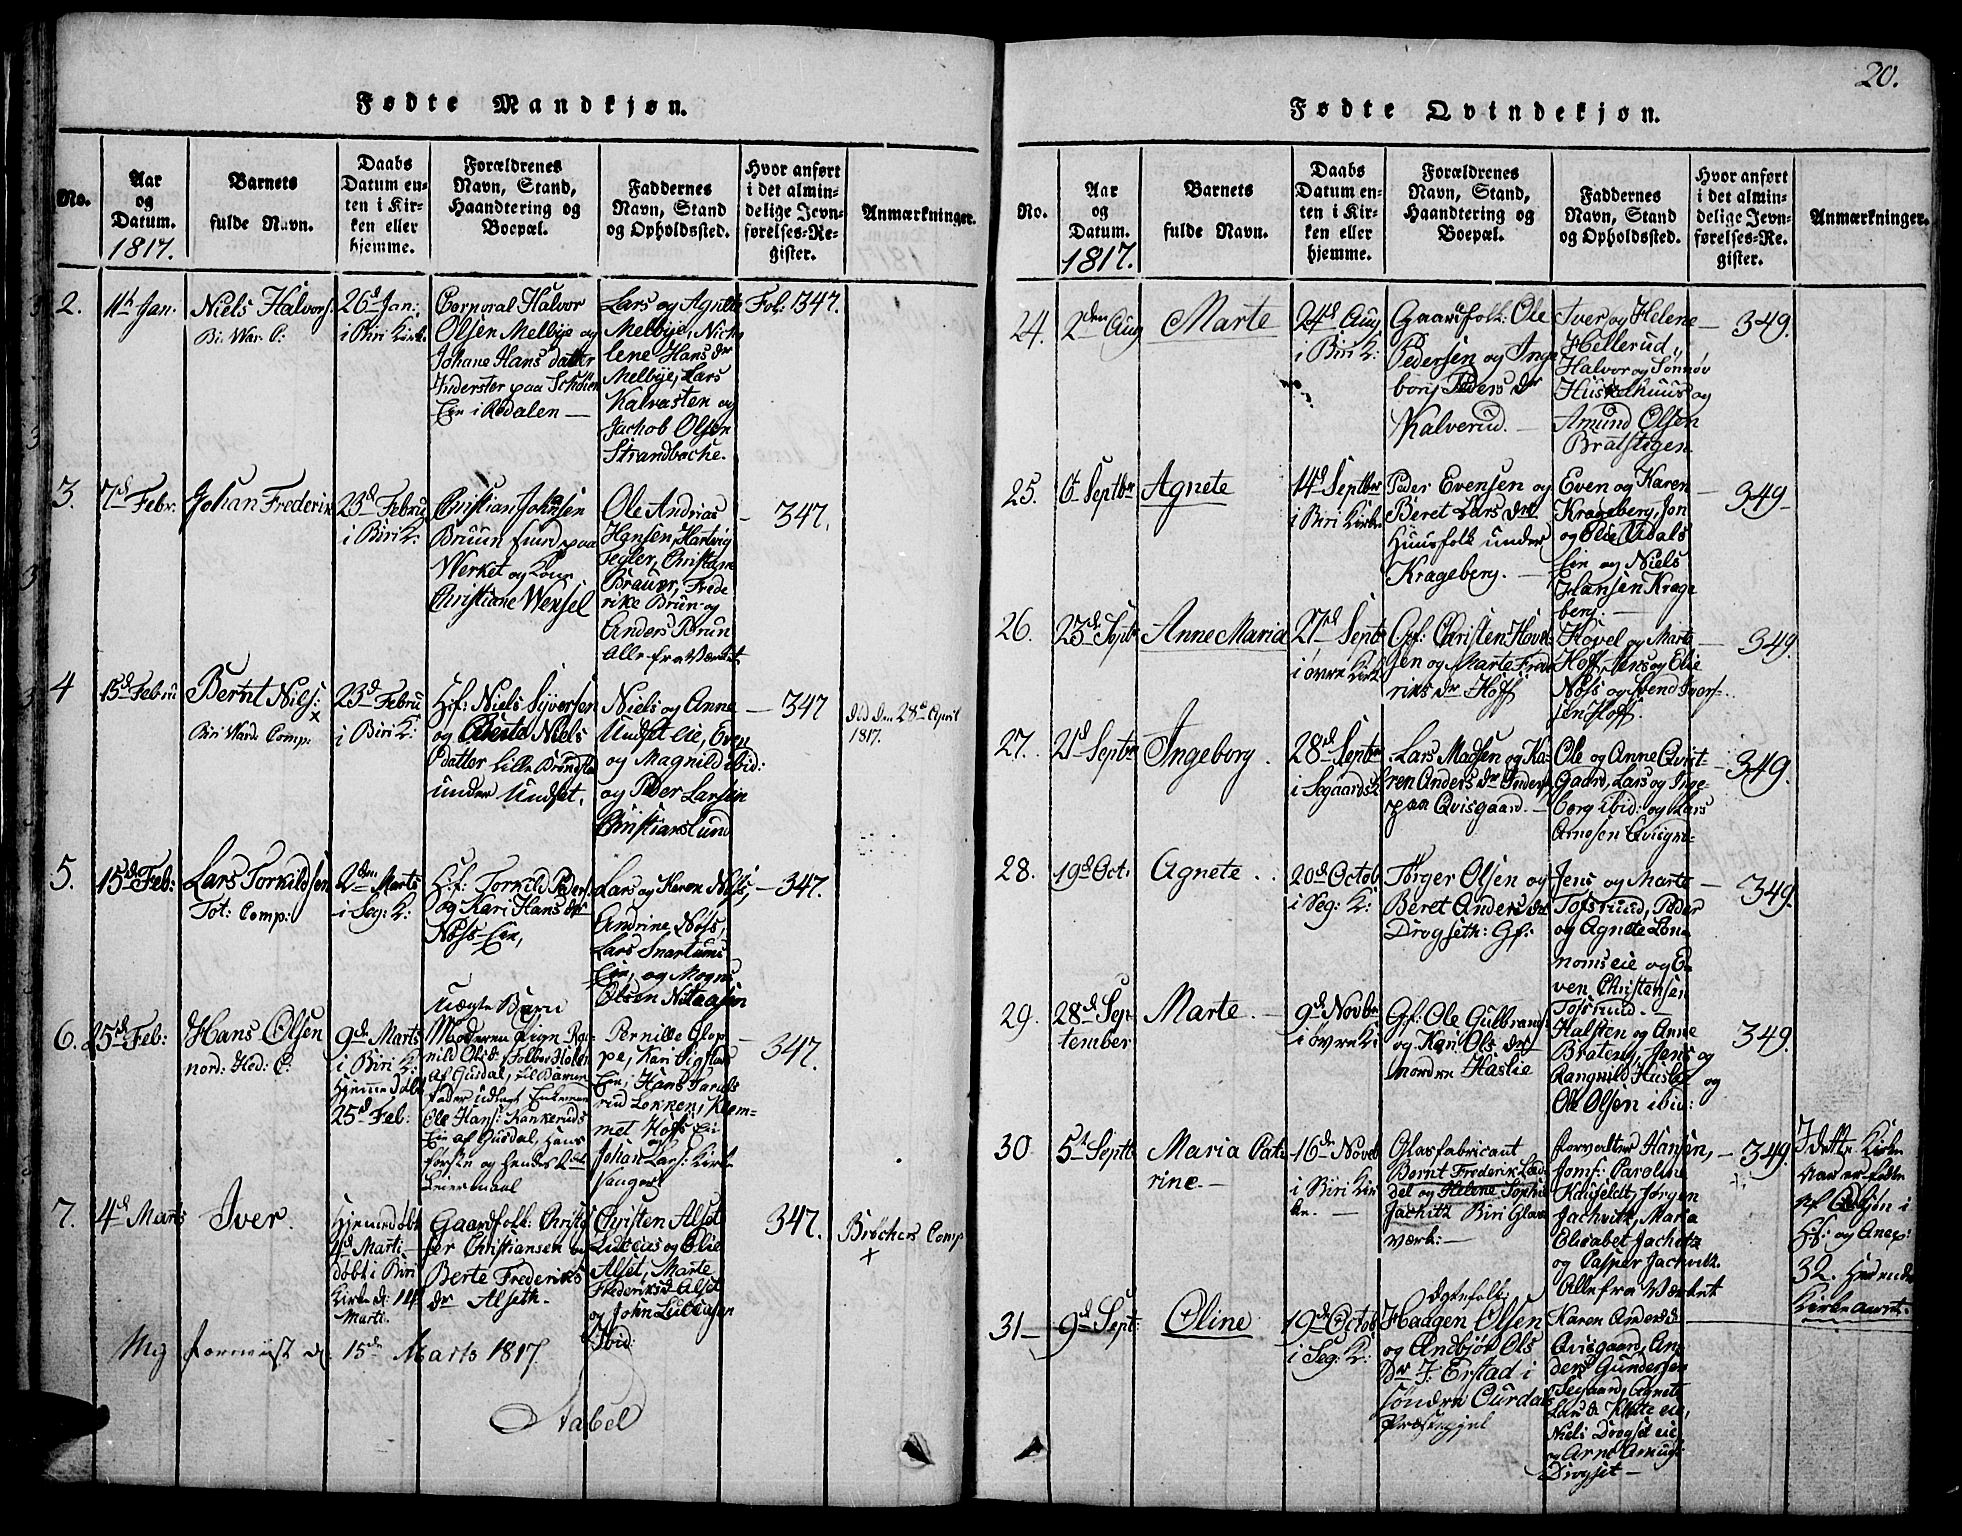 Fødte Mandkjøn.
No.
Aar
og
Datum.
1817.
Barnets
fulde Navn.
Daabs
Datum en-
ten i Kir-
ken eller
hjemme.
Forældrenes
Navn, Stand,
Haandtering og
Boepæl.
Faddernes
Navn, Stand
og Opholdssted.
Hvor anført
i det almin-
delige Jevn-
førelses-Re-
gister.
Anmærkninger.
2.
11te Jan.
Niels Halvors:
Bi. War. C:
26d Jan:
i Biri Kirke
Corporal Halvor
Olsen Melbye og
Johane Hans datter
Inderster paa Schöien
Eie i Redalen —
Lars og Agnete
Melbye, Nicho
lene Hans dr
Melbye, Lars
Kalvasten og
Jachob Olsen
Strandbache.
Fol: 1347.
3.
7d Febr.
Johan Frederik
23d Febru
i Biri K:
Christian Johnsen
Bruun Smed paa
Werket og Kone
Christiane Wensel
Ole Andrias
Hansen, Hartvig
Segler, Christiane
Brauer, Frede
rike Brun og
Anders Brun
Alle fra Værket
347.
4
15d Febru
Bernt Niels:
x
Biri Ward Comp:
23d Febru
i Biri K:
Hf: Niels Syversen
og Niels
datter Lille
under Undset.
Niels og Anne
Undset eie, Even
og Magnild ibid:
og Peder Larsen
Christianslund
347
Død den 28d April
1817.
5.
15d Feb:
Lars Torkildsen
Tot: Comp:
2den Marts
i Seg: K:
Hf: Torkild Peders
og Kari Hans dr
Næss-Eie,
Lars og Karen Næss,
Andrine Næss,
Lars Snartums
Eie, og Mogns
Olsen
347.
6.
25d Feb:
Hans Olsen
nord: Hed: C:
9de Marts
i Biri K:
Hjemme Døbt
25d Feb:
Uægte Barn
Moderen Pigen Rag
nild Ols dr
af Gusdal, til Barne
fader udlagt Enkemand
Ole Hans: Kankeruds
Eie af Gusdal, Hans
første og hendes 2det
Leiermaal
Pernille Glop
pe, Kari Sigstads
Eie, Hans
rud Løkken, Klem-
met Hoffs Eie
Johan Lars: Kirke
sanger
347.
7.
4d Marts
Iver.
Hjemmedøbt
4d Marti —
Døbt i Biri
Kirke d: 14
Marti.
Gaardfolk: Christof
fer Christiansen og
Berte Frederiks
dr Alseth.
Christen Alset
Lucias og Olie
Alset, Marte
Frederiksd. Alset
og John Luciasen
Ibid:
347.
Bröchers Comp
x
Mig forevist d: 15de Marts 1817.
Stabel
20.
Fødte Qvindekjøn.
No.
Aar
og
Datum.
1817.
Barnets
fulde Navn.
Daabs
Datum en-
ten i Kir-
ken eller
hjemme.
Forældrenes
Navn, Stand,
Haandtering og
Boepæl.
Faddernes
Navn, Stand
og Opholdssted.
Hvor anført
i det almin-
delige Jevn-
førelses-Re-
gister.
Anmærkninger.
24.
2den Aug
Marte
24d Aug
i Biri K:
Gaardfolk: Ole
Pedersen og Inge
borg Peders dr
Kalverud. —
Iver og Helene
Hellerud,
Halvor og Sønnøv
Huskelhuus og
Amund Olsen
Bratstigen
349.
25.
6t Septbr
Agnete
14d Septbr
i Biri Kirke
Peder Evensen og
Beret Lars dr
Huusfolk under
Krageberg. —
Even og Karen
Krageberg, Jon
og Olde Udals
Eie og Niels
Hansen Krage
berg. —
349 –
26.
23d Septbr
Anne Maria
27d Septbr
i øvre Kirk:
Gf: Christen Hovel
sen og Marte Frede
riks dr Hoff
Hovel og Marte
Hoff, Jens og Elie
Næss og Svend Iver-
sen Hoff.
349.
27.
21d Septbr
Ingeborg.
28d Septbr
i Segaards K.
Lars Madsen og Ka-
ren Anders dr Inderst
paa Qvisgaard. —
Ole og Anne Qvist-
gaard, Lars og Inge-
borg ibid: og Lars
Arnesen
349.
28.
19d Oct:
Agnete
20d Octob
i Seg: K:
Tørger Olsen og
Beret Anders dr
Drogseth: Gf:
Jens og Marte
Tofsrud, Peder
og Agnete Løne
noms eie og E
ven Christensen
Tofsrud. —
349.
29.
28d Sep-
tember
Marte. —
9d Novbr
i øvre K:
Gf: Ole Gulbrans:
og Kari Ols dr
nordre Haslie
Halsten og Anne
Brateng, Jens og
Rangnild og
Ole Olsen ibid:
349.
30
5t Septb
Maria Cath
rine. —
16de Novbr
i Biri Kir
ke. —
Glasfabricant
Bernt Frederik Lød
del og Helene Sophie
Jachvitz Biri Glas
værk: —
Forvalter Hansen,
Jomf: Paroline
Kaufeldt, Jørgen
Jachvitz, Maria
Elisabet Jachvitz
og Casper Jachvitz
Alle fra Værket
349.
I dette Kirke
Aar ere fødte
af Qvkjøn i
Hf: og Anex:
32. Herender
Kirkeaaret.
31 —
9d Sept:
Oline
19d Octob
i Seg: K:
Ægtefolk:
Haagen Olsen
og Andbjør Ols
Dr I: Erstad i
søndre Ourdals
Præstegjel
Karen Andersd.
Qvisgaard, An-
ders Gundersen
Segaard, Agnete
Lars d. Klette eie,
Niels Drogset eie
og Arne
Drogset —